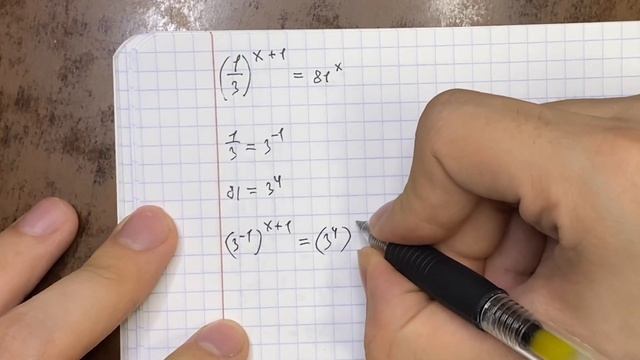 (1/3)^(x+1) = 81^x
1/3 = 3^-1
81 = 3^4
(3^-1)^(x+1) = (3^4)